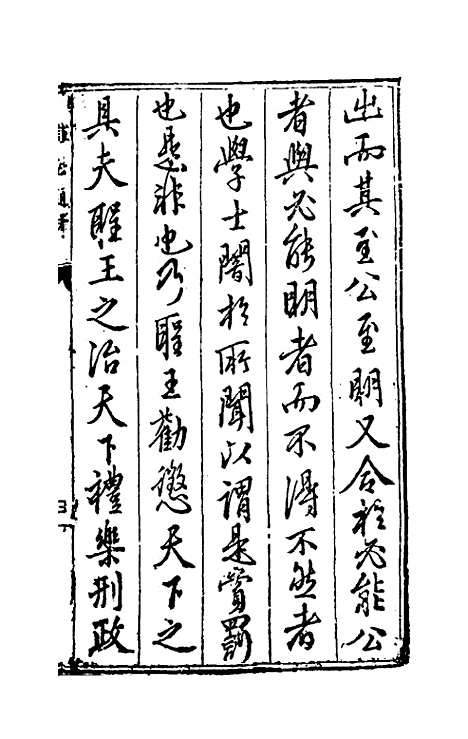 出而其至公至明又合於必能公
者與必能明者而不得不然者
也學士闇於所聞以謂是賞罰
也是非也乃聖王勸懲天下之
具夫聖王之治天下禮樂刑政